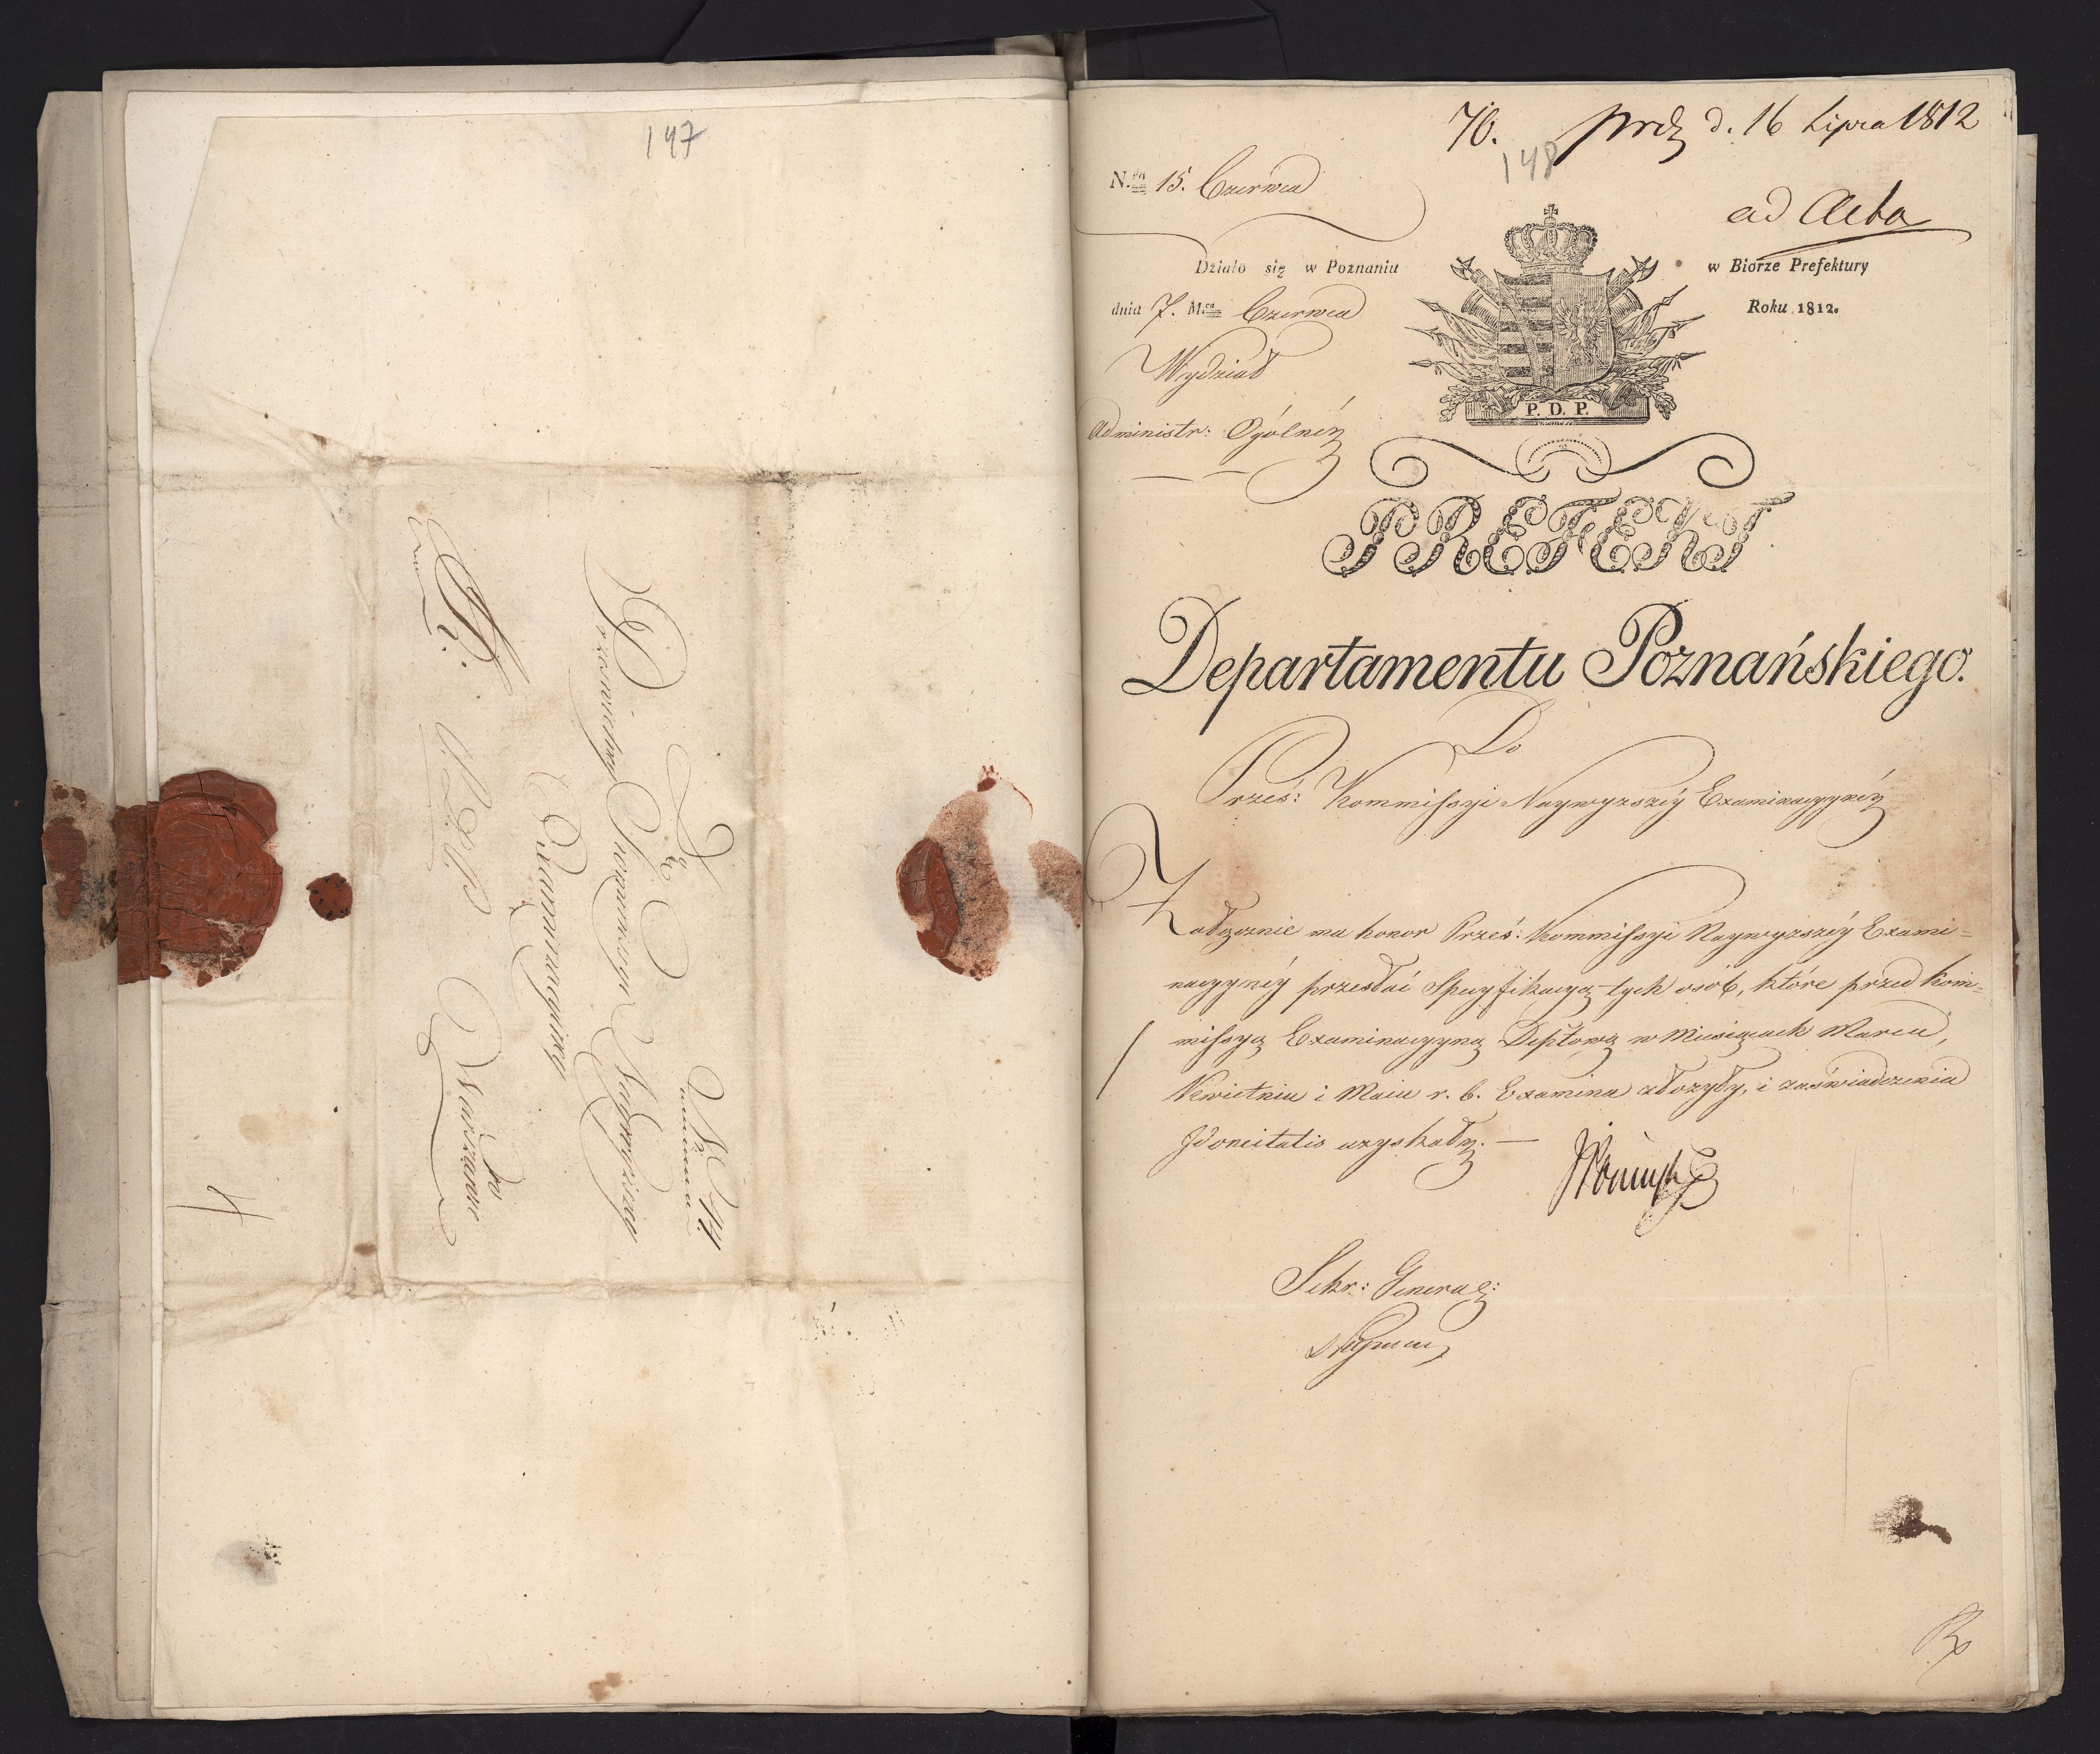 147
Do
Prześwietney Kommissyi Naywyższey
Examinacyiney
w
Warszawie
4
76. prdz d. 16 Lipca 1812
148
N.ro 15. Czerwca
ad Acta
Działo się w Poznaniu w Biórze Prefektury
dnia 7. M.ca Czerwca Roku 1812.
Wydział
Administr: Ogólnéy
P. D. P.
PREFEKT
Departamentu Poznańskiego.
Do
Prześ: Kommissyi Naywyzszéy Examinacyynéy
Załącznie ma honor Prześ: Kommissyi Naywyzszéy Exami=
nacyynéy przesłać Specyfikacyą tych osób, które przed Kom=
missyą Examinacyyną Depłową w Miesiącach Marcu,
Kwietniu i Maiu r. b. Examina złozyły, i zaświadczenia
Idoneitatis uzyskały. —
Sekr: General: